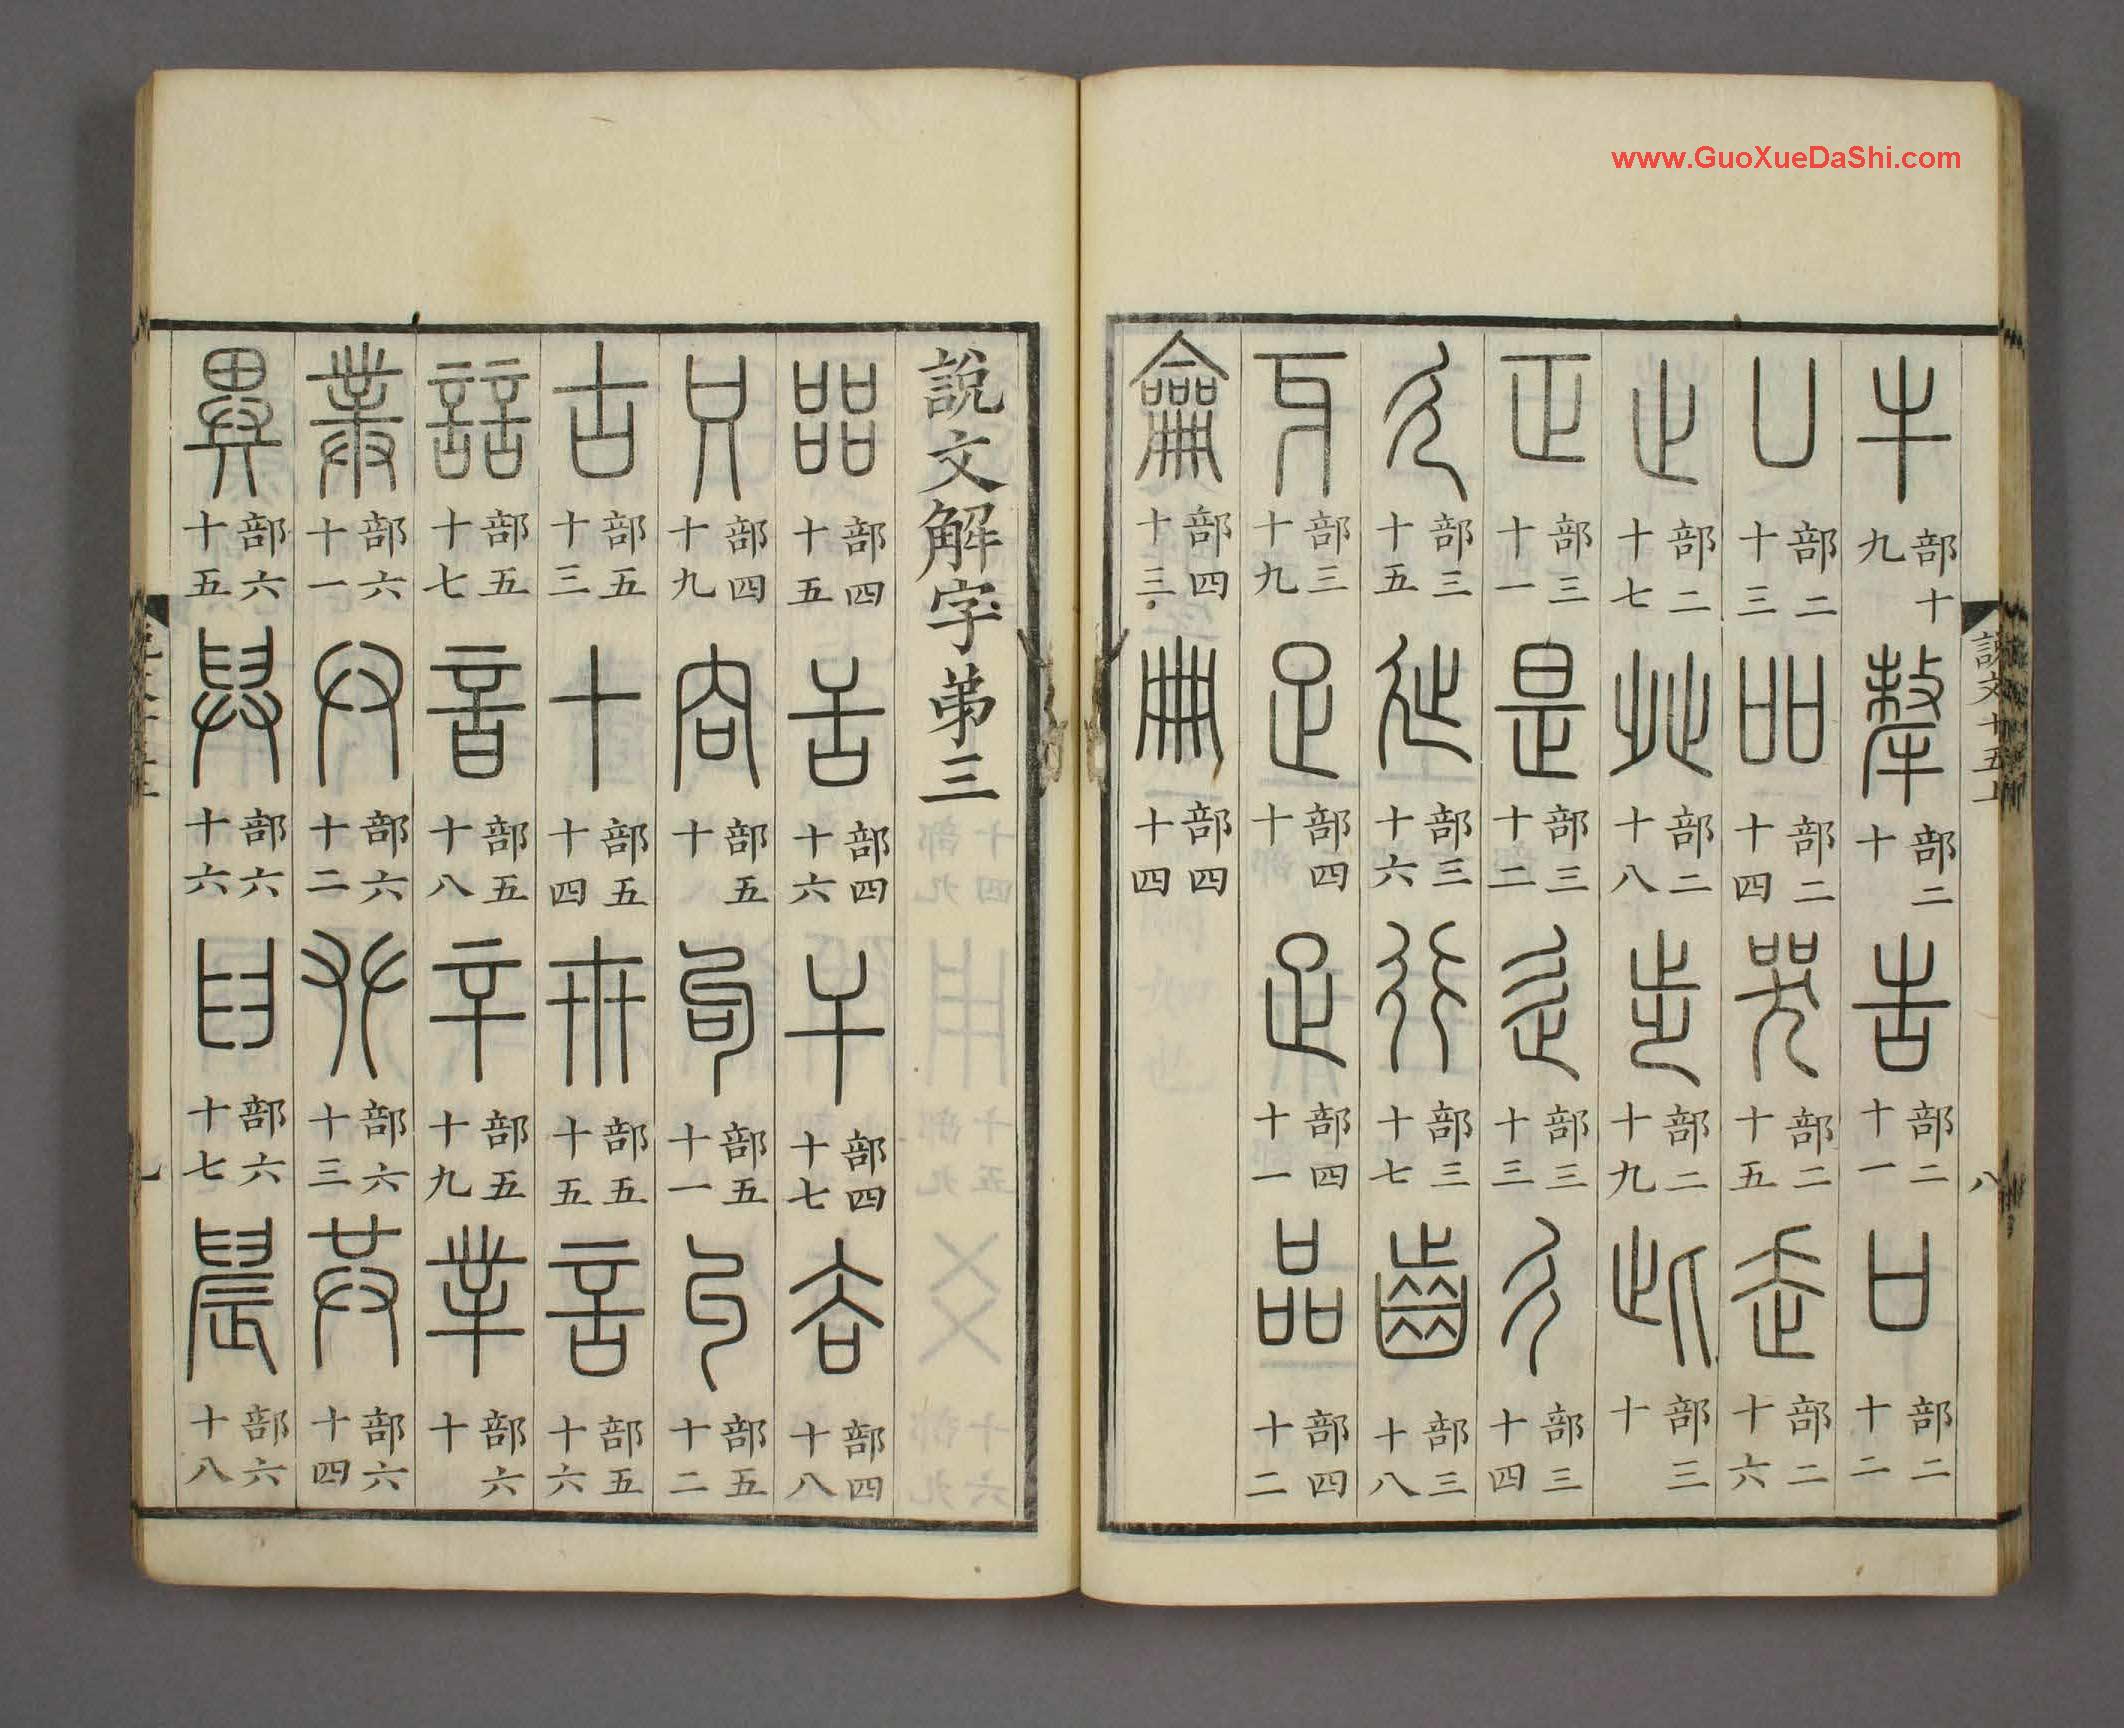 www.GuoXueDaShi.com
說文十五上
八
牛部十九犛部二十告部二十一口部二十二
凵部二十三吅部二十四哭部二十五走部二十六
止部二十七癶部二十八步部二十九此部三十
正部三十一是部三十二辵部三十三彳部三十四
廴部三十五㢟部三十六行部三十七齒部三十八
牙部三十九足部四十疋部四十一品部四十二
龠部四十三冊部四十四
說文解字弟三
㗊部四十五舌部四十六干部四十七𧮫部四十八
只部四十九㕯部五十句部五十一丩部五十二
古部五十三十部五十四卅部五十五言部五十六
誩部五十七音部五十八䇂部五十九丵部六十
菐部六十一廾部六十二𠬜部六十三共部六十四
異部六十五舁部六十六𦥑部六十七䢅部六十八